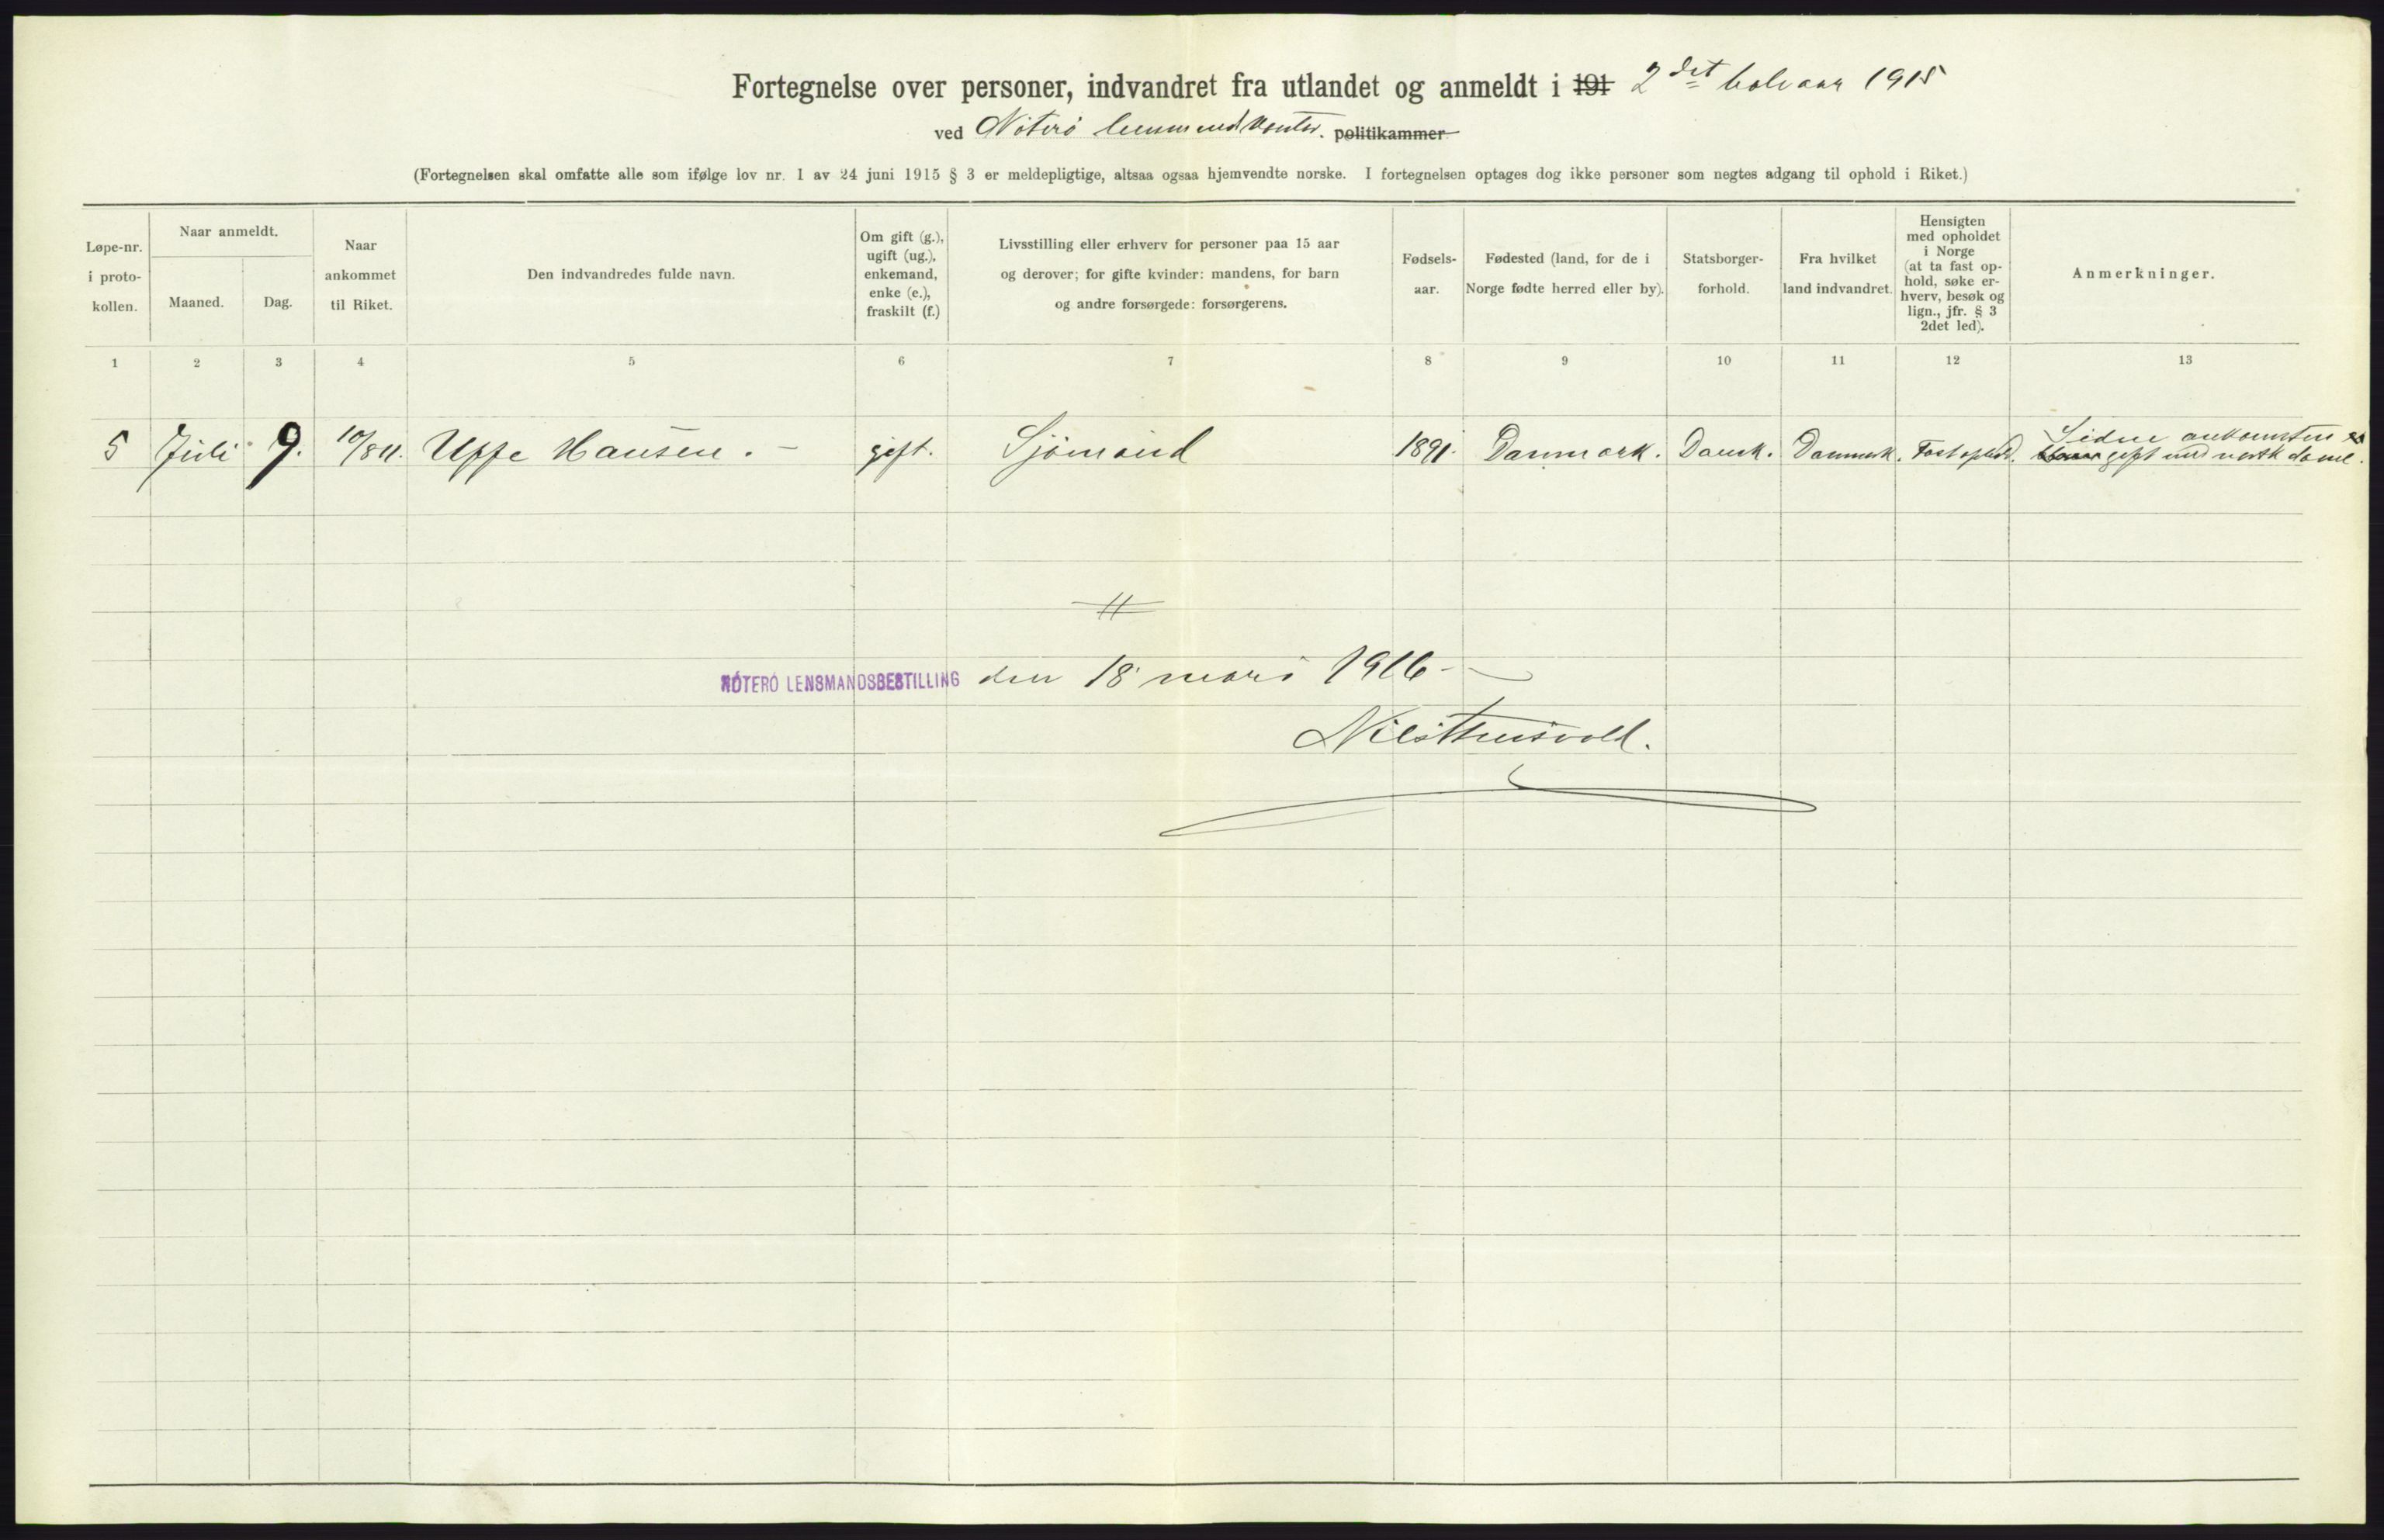 Fortegnelse over personer, indvandret fra utlandet og anmeldt i 191 2det halvaar 1915
ved Nøterø lensmandskontor. politikammer
(Fortegnelsen skal omfatte alle som ifølge lov nr. 1 av 24 juni 1915 § 3 er meldepligtige, altsaa ogsaa hjemvendte norske. I fortegnelsen optages dog ikke personer som negtes adgang til ophold i Riket.)
Løpe-nr.
i proto-
kollen.
Naar anmeldt.
Maaned.
Dag.
Naar
ankommet
til Riket.
Den indvandredes fulde navn.
Om gift (g.),
ugift (ug.),
enkemand,
enke (e.),
fraskilt (f.)
Livsstilling eller erhverv for personer paa 15 aar
og derover; for gifte kvinder: mandens, for barn
og andre forsørgede: forsørgerens.
Fødsels-
aar.
Fødested (land, for de i
Norge fødte herred eller by).
Statsborger-
forhold.
Fra hvilket
land indvandret.
Hensigten
med opholdet
i Norge
(at ta fast op-
hold, søke er-
hverv, besøk og
lign., jfr. § 3
2det led).
Anmerkninger.
1 2 3 4 5 6 7 8 9 10 11 12 13
5 Juli 9. 10/8 11. Uffe Hansen. — gift. Sjömand 1891. Danmark. Dansk. Danmark. Fast ophold.
Siden ankomsten er
gift med norsk dame.
NØTERØ LENSMANDSBESTILLING den 18 mars 1916 —